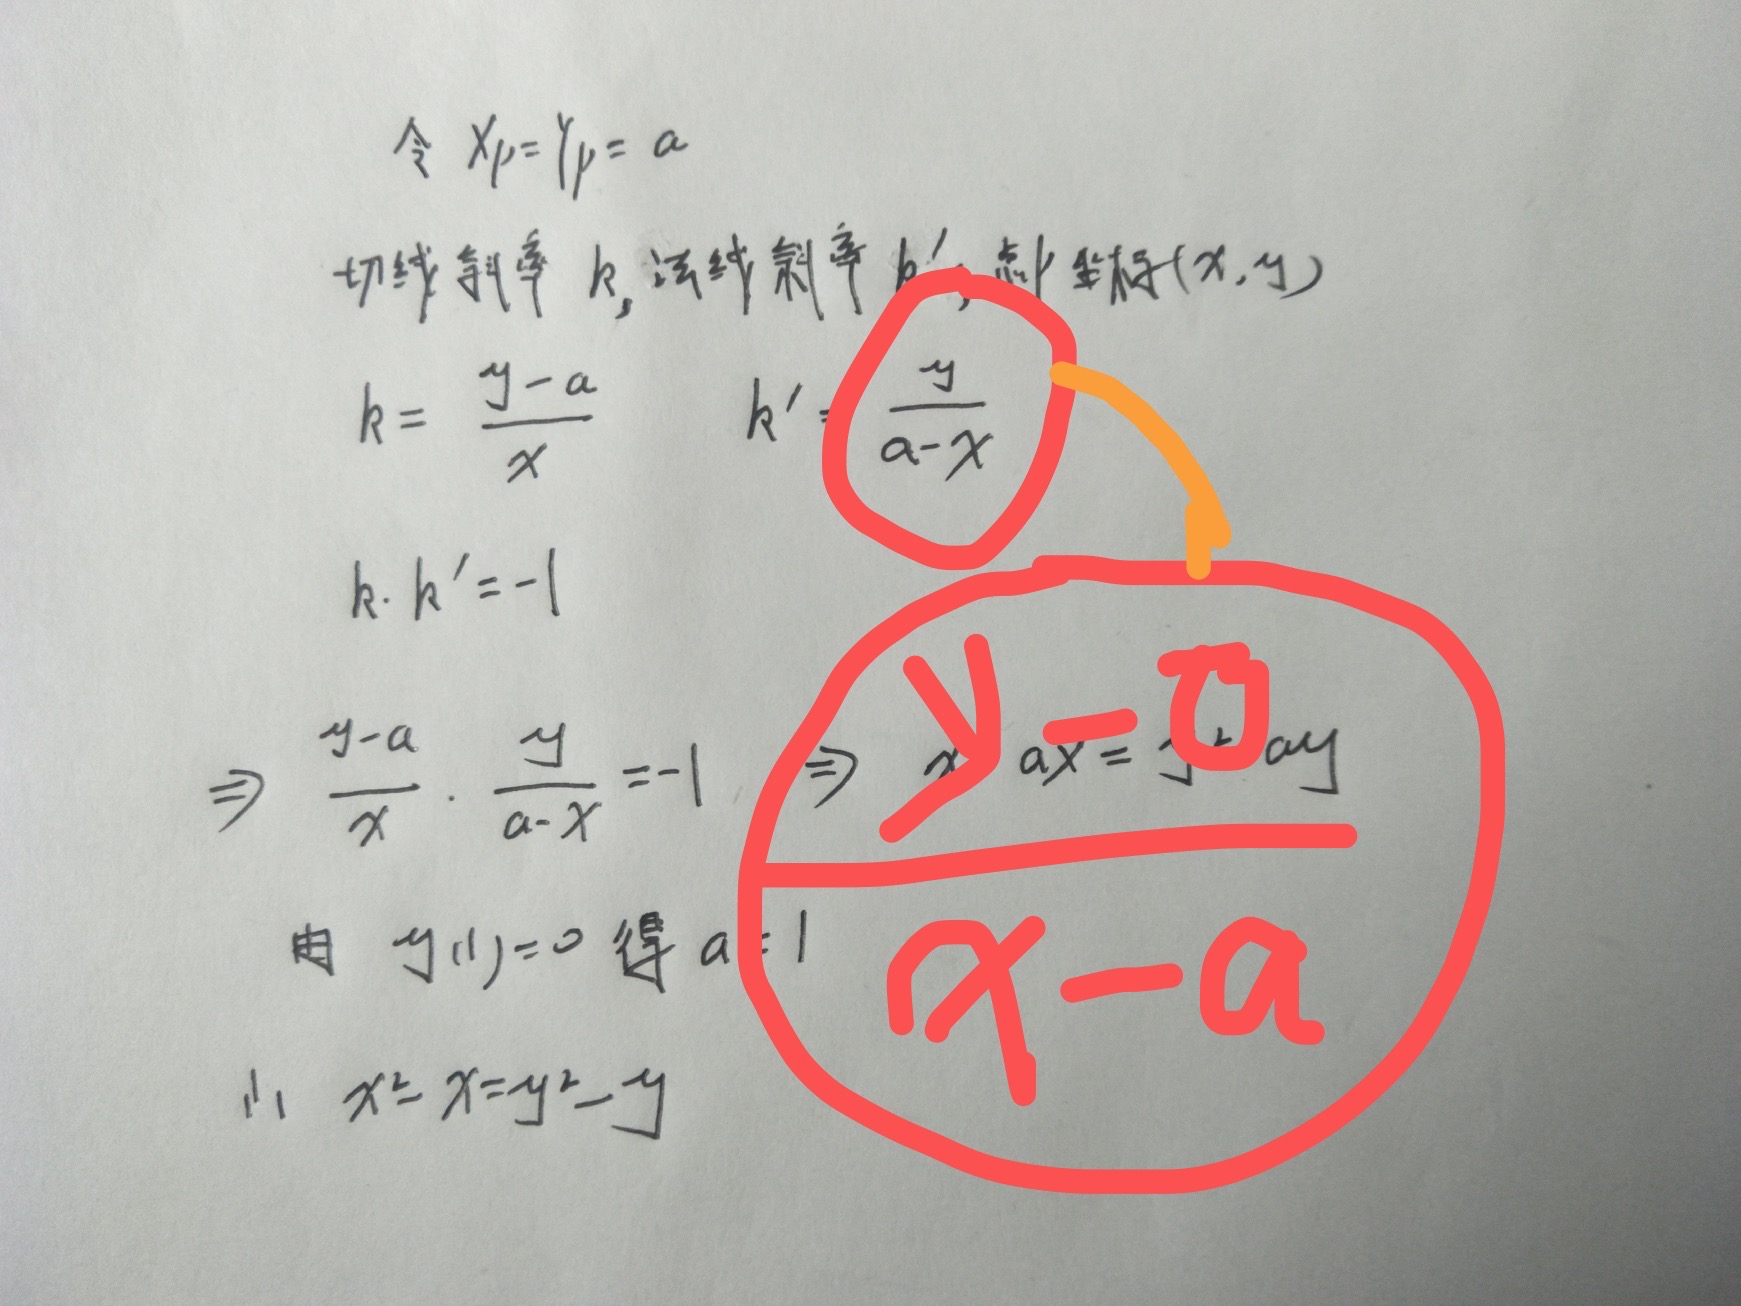 令 Xp=Yp=a
切线斜率 k,法线斜率 k′,点P坐标(x,y)
k= (y-a)/x k′= y/(a-x)
k·k′=-1
⇒ (y-a)/x · y/(a-x) =-1 ⇒ x ax= y² ay
y-0
x-a
由 y(1)=0 得 a=1
∴ x²-x=y²-y